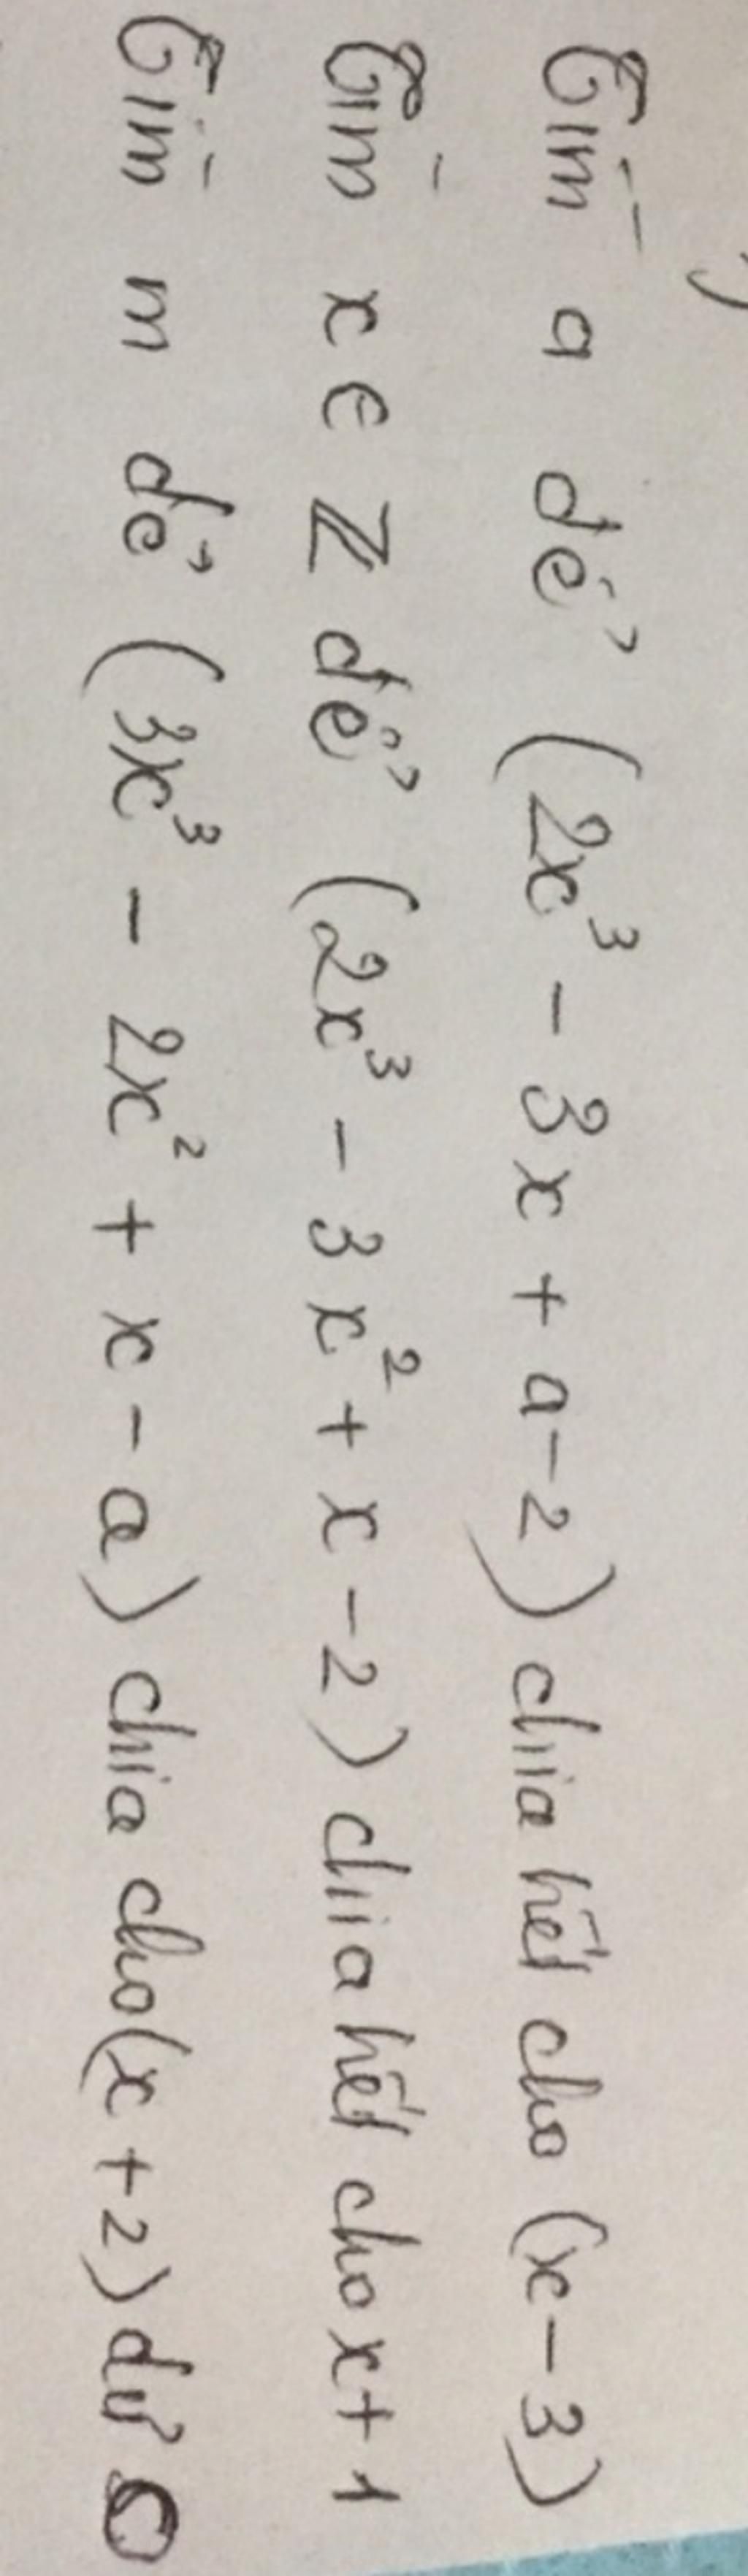 Tìm a để (2x³ - 3x + a - 2) chia hết cho (x - 3)
Tìm x ∈ Z để (2x³ - 3x² + x - 2) chia hết cho x + 1
Tìm m để (3x³ - 2x² + x - a) chia cho (x + 2) dư 0